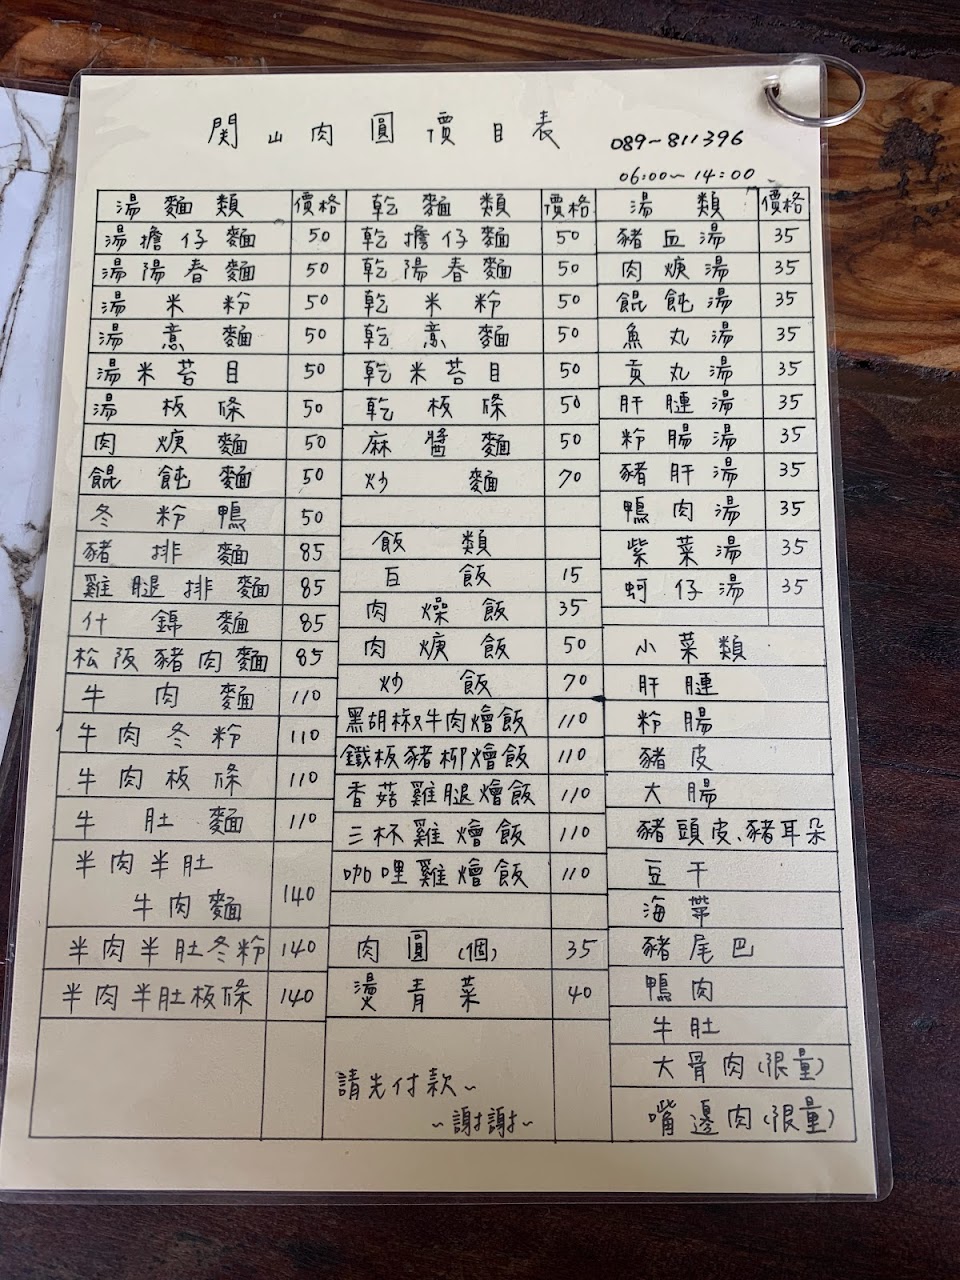 関山肉圓價目表 089-811396
06:00~14:00
湯麵類 價格
湯擔仔麵 50
湯陽春麵 50
湯米粉 50
湯意麵 50
湯米苔目 50
湯板條 50
肉焿麵 50
餛飩麵 50
冬粉鴨 50
豬排麵 85
雞腿排麵 85
什錦麵 85
松阪豬肉麵 85
牛肉麵 110
牛肉冬粉 110
牛肉板條 110
牛肚麵 110
半肉半肚
牛肉麵 140
半肉半肚冬粉 140
半肉半肚板條 140
乾麵類 價格
乾擔仔麵 50
乾陽春麵 50
乾米粉 50
乾意麵 50
乾米苔目 50
乾板條 50
麻醬麵 50
炒麵 70
飯類
白飯 15
肉燥飯 35
肉焿飯 50
炒飯 70
黑胡椒牛肉燴飯 110
鐵板豬柳燴飯 110
香菇雞腿燴飯 110
三杯雞燴飯 110
咖哩雞燴飯 110
肉圓(個) 35
燙青菜 40
請先付款~
~謝謝~
湯類 價格
豬血湯 35
肉焿湯 35
餛飩湯 35
魚丸湯 35
貢丸湯 35
肝腱湯 35
粉腸湯 35
豬肝湯 35
鴨肉湯 35
紫菜湯 35
蚵仔湯 35
小菜類
肝腱
粉腸
豬皮
大腸
豬頭皮、豬耳朵
豆干
海帶
豬尾巴
鴨肉
牛肚
大骨肉(限量)
嘴邊肉(限量)